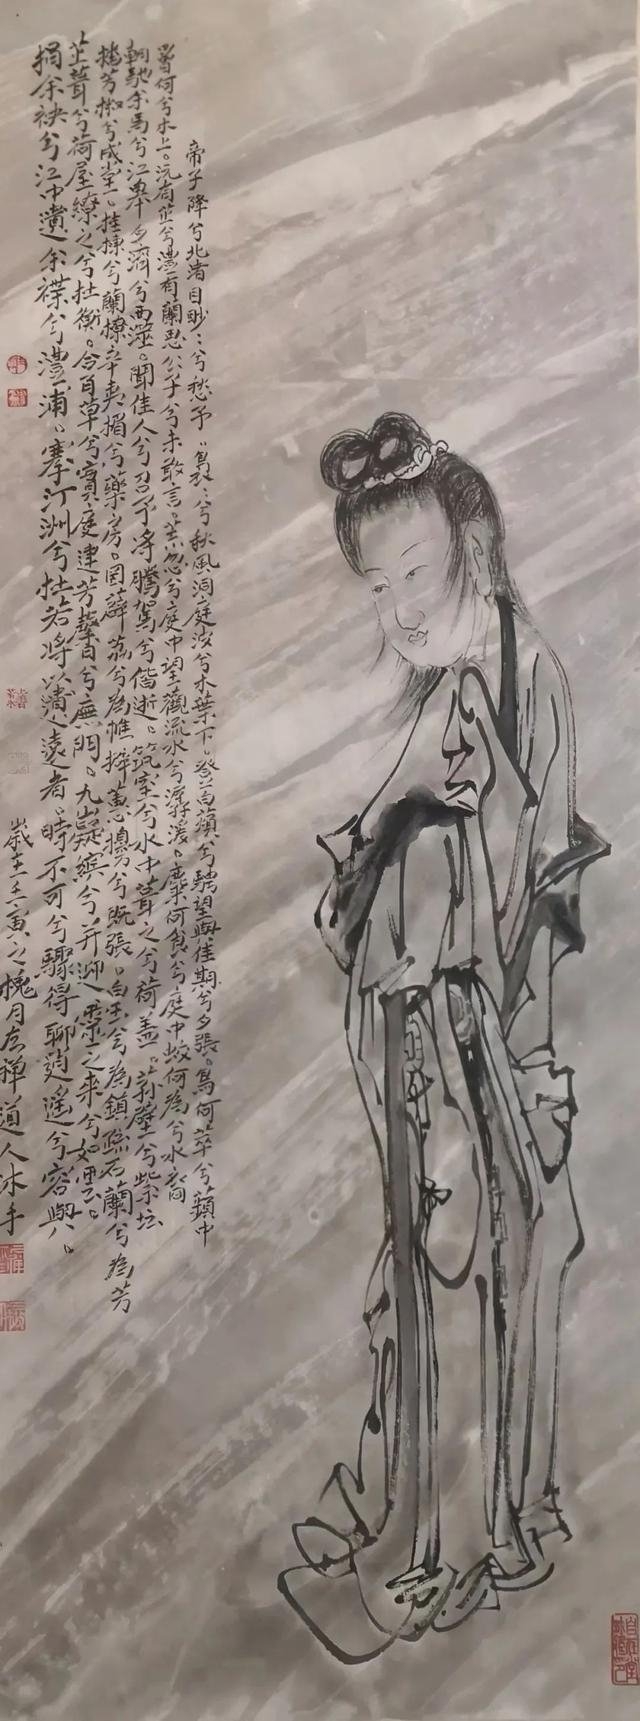 帝子降兮北渚目眇〻兮愁予。裊〻兮秋風洞庭波兮木葉下。登白蘋兮騁望與佳期兮夕張。鳥何萃兮蘋中
罾何兮木上。沅有芷兮澧有蘭思公子兮未敢言。荒忽兮庭中望觀流水兮潺湲。麋何食兮庭中蛟何為兮水裔
朝馳余馬兮江皋夕濟兮西澨。聞佳人兮召予將騰駕兮偕逝。筑室兮水中葺之兮荷盖。蓀壁兮紫坛
播芳椒兮成堂。桂棟兮蘭橑辛夷楣兮藥房。罔薜荔兮為帷擗蕙櫋兮既張。白玉兮為鎮疏石蘭兮為芳
芷葺兮荷屋繚之兮杜衡。合百草兮實庭建芳馨兮廡門。九嶷繽兮并迎靈之来兮如雲。
捐余袂兮江中遺余褋兮澧浦。搴汀洲兮杜若將以遺兮遠者。時不可兮驟得聊逍遙兮容與。
歲在壬寅之槐月 禅道人沐手